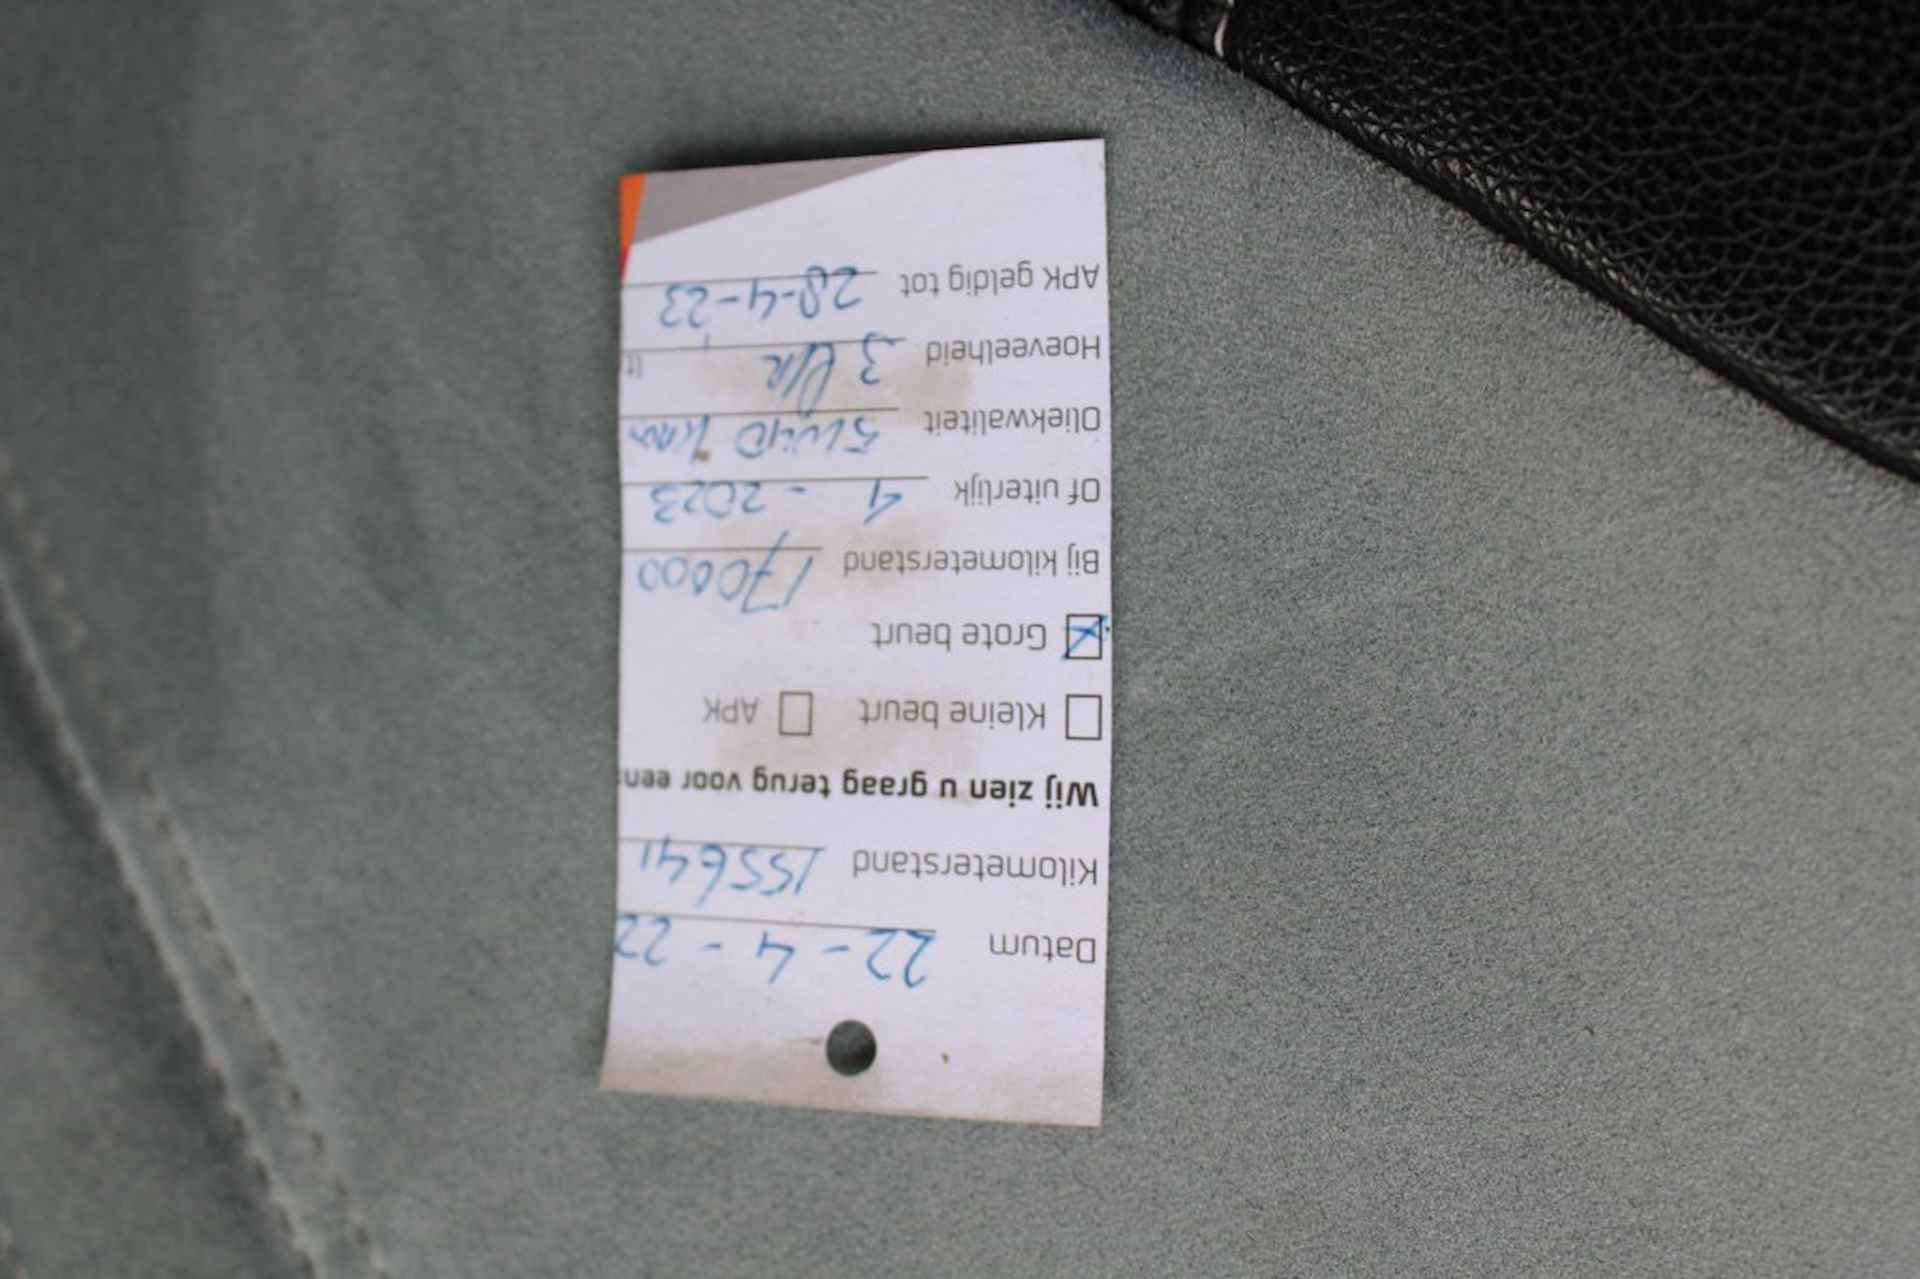 Datum 22-4-22
Kilometerstand 155641
Wij zien u graag terug voor een:
Kleine beurt APK
Grote beurt
Bij kilometerstand 170000
Of uiterlijk 4-2023
Oliekwaliteit 5W40
Hoeveelheid 3 lt.
APK geldig tot 28-4-23